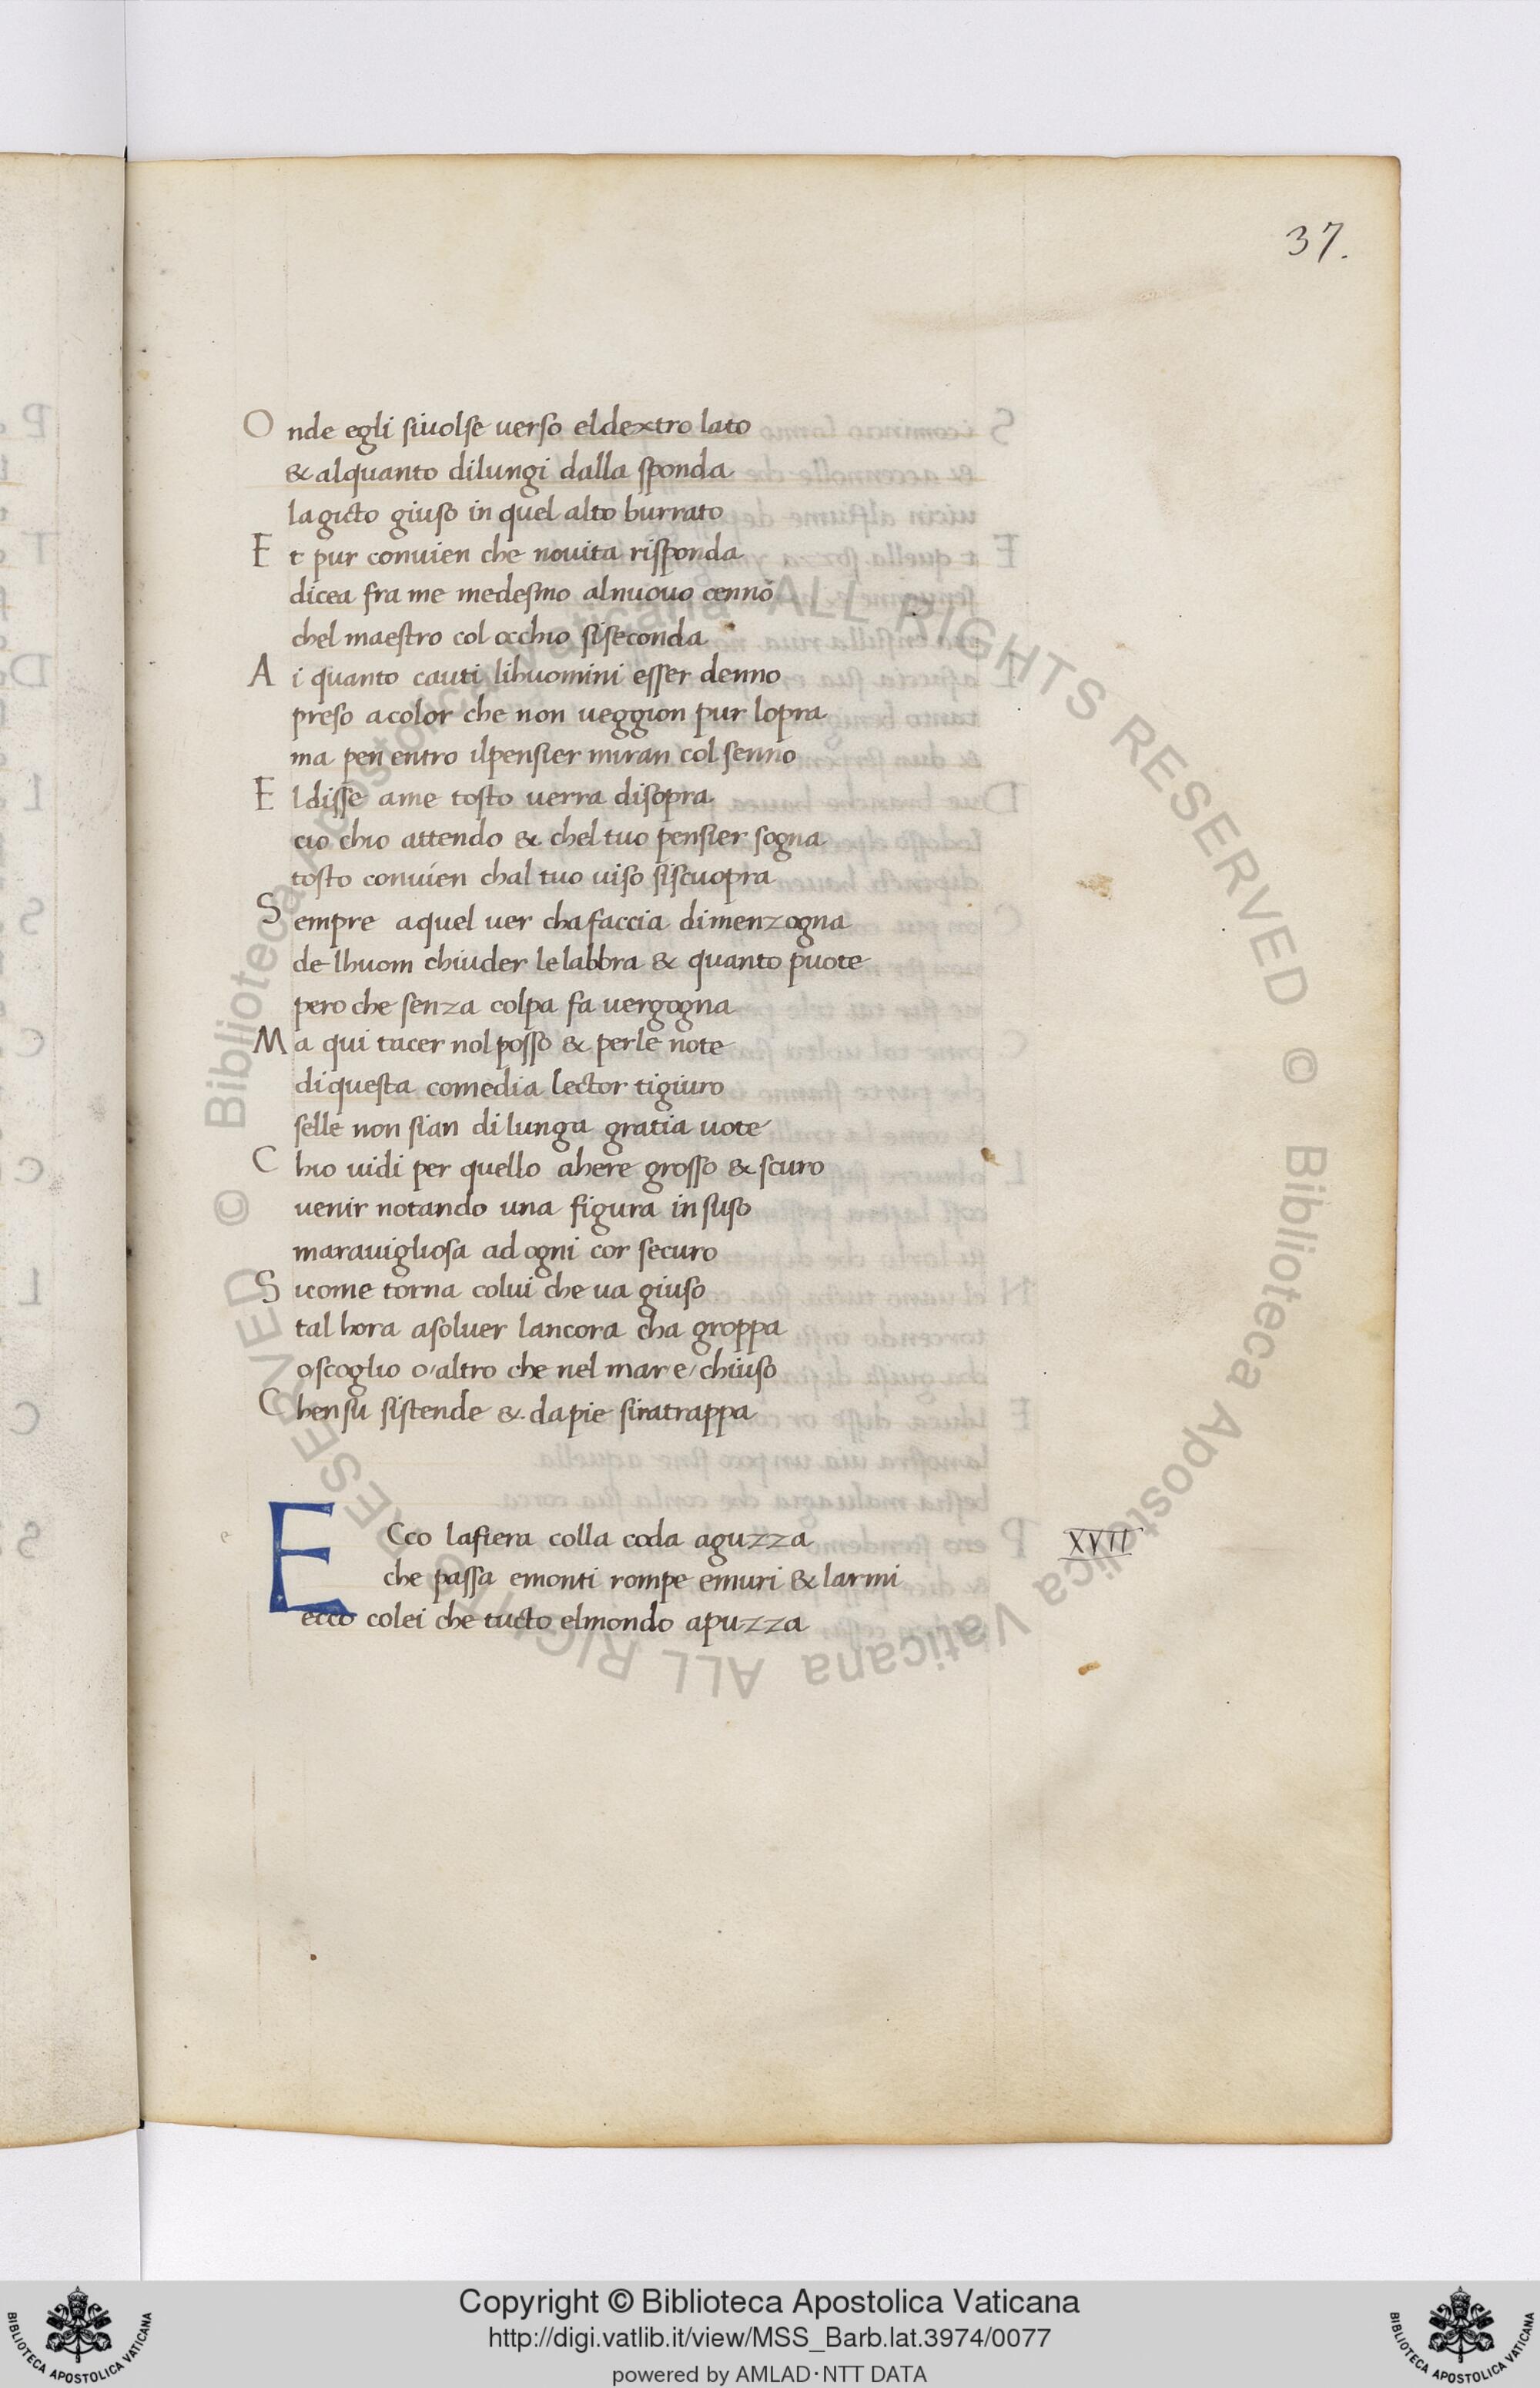 37.
Onde egli siuolse uerso eldextro lato
& alquanto dilungi dalla sponda
lagicto giuso in quel alto burrato
Et pur conuien che nouita risponda
dicea fra me medesmo alnuouo cenno
chel maestro col occhio siseconda
Ai quanto cauti lihuomini esser denno
preso acolor che non ueggion pur lopra
ma pen entro ilpensier miran col senno
El disse ame tosto uerra disopra
cio chio attendo & chel tuo pensier sogna
tosto conuien chal tuo uiso siscuopra
Sempre aquel uer cha faccia dimenzogna
de lhuom chiuder le labbra & quanto puote
pero che senza colpa fa uergogna
Ma qui tacer nol posso & perle note
diquesta comedia lector tigiuro
selle non sian di lunga gratia uote
Chio uidi per quello ahere grosso & scuro
uenir notando una figura in suso
marauigliosa ad ogni cor securo
Sicome torna colui che ua giuso
tal hora asoluer lancora cha groppa
oscoglio o altro che nel mar e chiuso
Chen su sistende & da pie siratrappa
ECco lafiera colla coda aguzza
XVII
che passa emonti rompe emuri & larmi
ecco colei che tucto elmondo apuzza
© Biblioteca Apostolica Vaticana ALL RIGHTS RESERVED © Biblioteca Apostolica Vaticana ALL RIGHTS RESERVED
Copyright © Biblioteca Apostolica Vaticana
http://digi.vatlib.it/view/MSS_Barb.lat.3974/0077
powered by AMLAD·NTT DATA
BIBLIOTECA APOSTOLICA VATICANA
BIBLIOTECA APOSTOLICA VATICANA